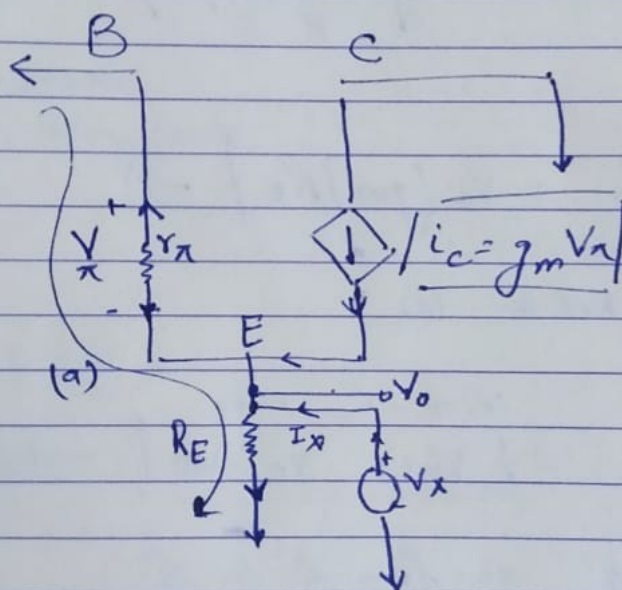 B C
+
V
π
rπ
-
ic = gm Vπ
E
(a)
Vo
RE
Ix
+
Vx
-